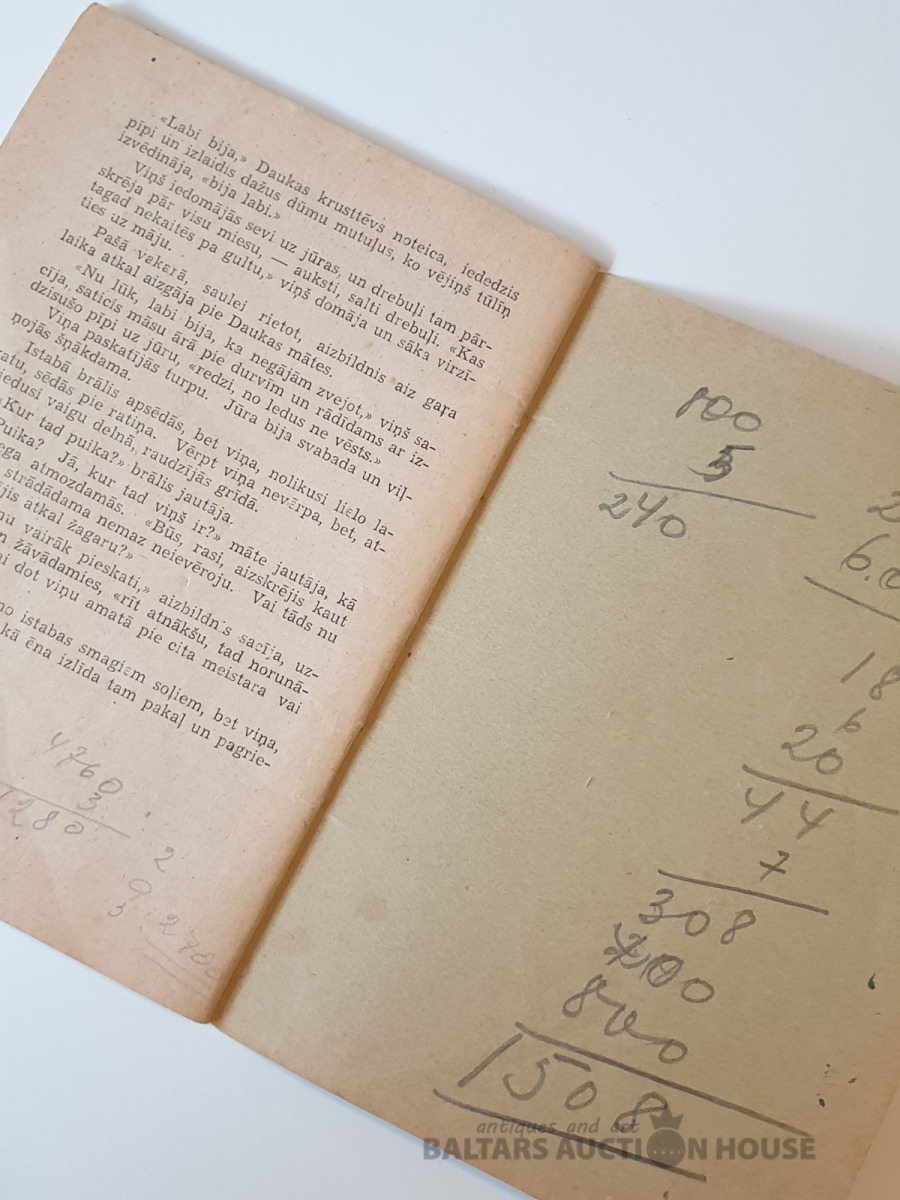 «Labi bija,» Daukas krusttēvs noteica, iededzis
pīpi un izlaidis dažus dūmu mutuļus, ko vējiņš tūliņ
izvēdināja, «bija labi.»
Viņš iedomājās sevi uz jūras, un drebuļi tam pār-
skrēja pār visu miesu, — auksti, salti drebuļi. «Kas
tagad nekaitēs pa gultu,» viņš domāja un sāka virzī-
ties uz māju.
Pašā vakarā, saulei rietot, aizbildnis aiz gaŗa
laika atkal aizgāja pie Daukas mātes.
«Nu lūk, labi bija, ka negājām zvejot,» viņš sa-
cīja, saticis māsu ārā pie durvīm un rādīdams ar iz-
dzisušo pīpi uz jūru, «redzi, no ledus ne vēsts.»
Viņa paskatījās turpu. Jūra bija svabada un viļ-
ņojās šņākdama.
Istabā brālis apsēdās, bet viņa, nolikusi lielo la-
katu, sēdās pie ratiņa. Vērpt viņa nevērpa, bet, at-
iedusi vaigu delnā, raudzījās grīdā.
«Kur tad puika?» brālis jautāja.
Puika? Jā, kur tad viņš ir?» māte jautāja, kā
ega atmozdamās. «Būs, rasi, aizskrējis kaut
strādādama nemaz neievēroju. Vai tāds nu
ājis atkal žagaru?»
nu vairāk pieskati,» aizbildnis sacīja, uz-
n žāvādamies, «rīt atnākšu, tad norunā-
ai dot viņu amatā pie cita meistara vai
no istabas smagiem soļiem, bet viņa,
kā ēna izlīda tam pakaļ un pagrie-
4760
3
1280
2
9
3
2700
240
2
6.0
18
6
20
44
7
308
800
1508
antiques and art
BALTARS AUCTION HOUSE